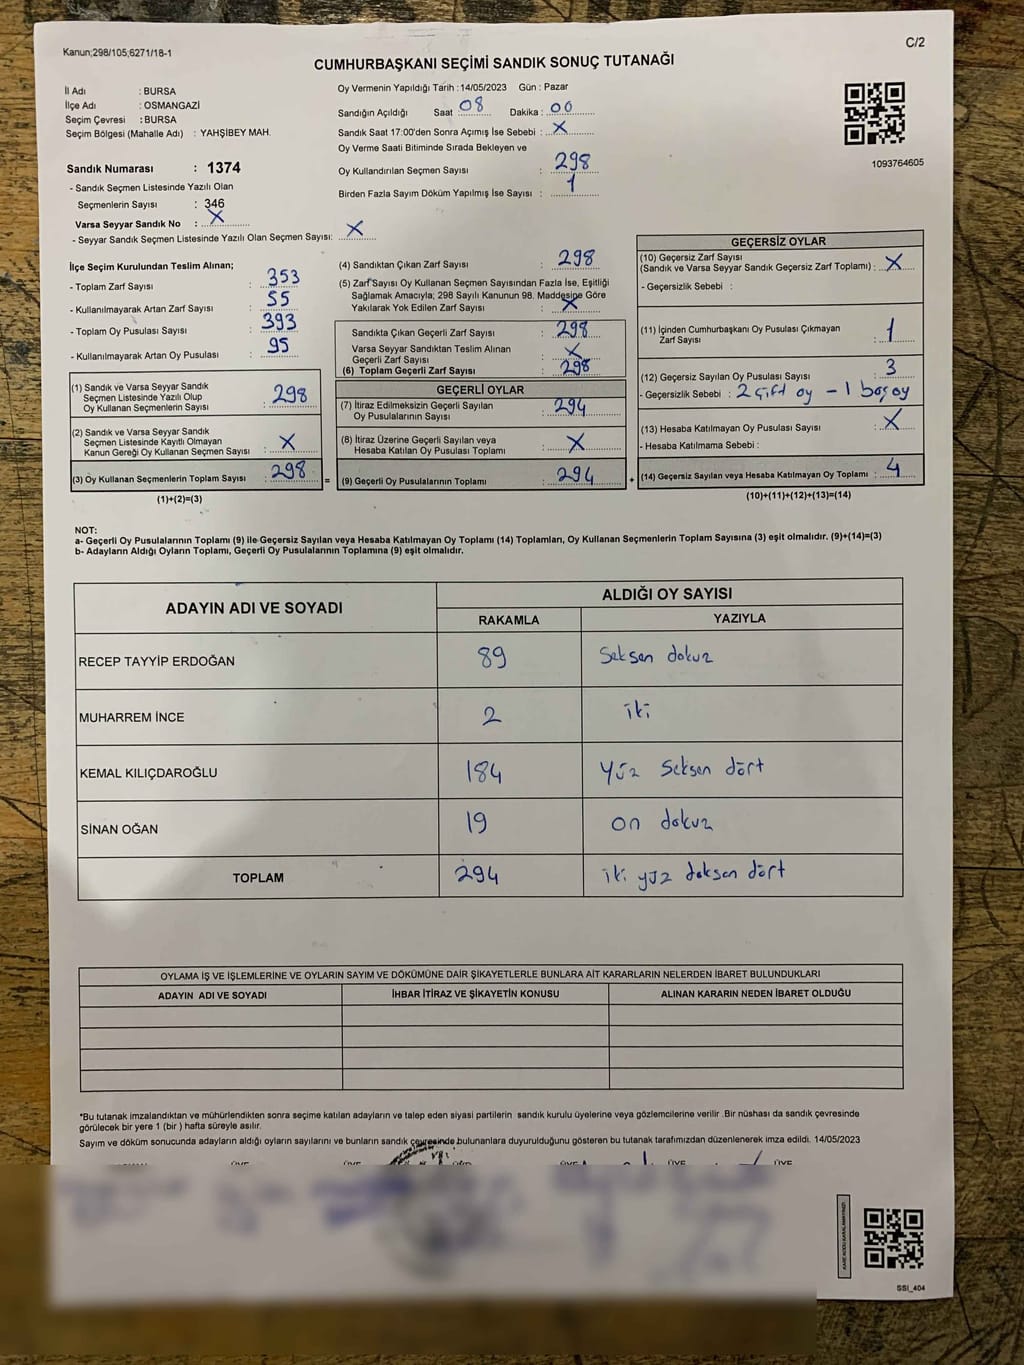 Kanun;298/105,6271/18-1
C/2
CUMHURBAŞKANI SEÇİMİ SANDIK SONUÇ TUTANAĞI
İl Adı : BURSA
İlçe Adı : OSMANGAZİ
Seçim Çevresi : BURSA
Seçim Bölgesi (Mahalle Adı) : YAHŞİBEY MAH.
Sandık Numarası : 1374
- Sandık Seçmen Listesinde Yazılı Olan
Seçmenlerin Sayısı : 346
Varsa Seyyar Sandık No : X
- Seyyar Sandık Seçmen Listesinde Yazılı Olan Seçmen Sayısı: X
Oy Vermenin Yapıldığı Tarih :14/05/2023 Gün : Pazar
Sandığın Açıldığı Saat 08 Dakika : 00
Sandık Saat 17:00'den Sonra Açımış İse Sebebi : X
Oy Verme Saati Bitiminde Sırada Bekleyen ve
Oy Kullandırılan Seçmen Sayısı : 298
Birden Fazla Sayım Döküm Yapılmış İse Sayısı : 1
1093764605
İlçe Seçim Kurulundan Teslim Alınan;
- Toplam Zarf Sayısı : 353
- Kullanılmayarak Artan Zarf Sayısı : 55
- Toplam Oy Pusulası Sayısı : 393
- Kullanılmayarak Artan Oy Pusulası : 95
(1) Sandık ve Varsa Seyyar Sandık
Seçmen Listesinde Yazılı Olup
Oy Kullanan Seçmenlerin Sayısı : 298
(2) Sandık ve Varsa Seyyar Sandık
Seçmen Listesinde Kayıtlı Olmayan
Kanun Gereği Oy Kullanan Seçmen Sayısı : X
(3) Oy Kullanan Seçmenlerin Toplam Sayısı : 298 =
(1)+(2)=(3)
(4) Sandıktan Çıkan Zarf Sayısı : 298
(5) Zarf Sayısı Oy Kullanan Seçmen Sayısından Fazla İse, Eşitliği
Sağlamak Amacıyla; 298 Sayılı Kanunun 98. Maddesine Göre
Yakılarak Yok Edilen Zarf Sayısı : X
Sandıkta Çıkan Geçerli Zarf Sayısı : 298
Varsa Seyyar Sandıktan Teslim Alınan
Geçerli Zarf Sayısı : X
(6) Toplam Geçerli Zarf Sayısı : 298
GEÇERLİ OYLAR
(7) İtiraz Edilmeksizin Geçerli Sayılan
Oy Pusulalarının Sayısı : 294
(8) İtiraz Üzerine Geçerli Sayılan veya
Hesaba Katılan Oy Pusulası Toplamı : X
(9) Geçerli Oy Pusulalarının Toplamı : 294 +
GEÇERSİZ OYLAR
(10) Geçersiz Zarf Sayısı
(Sandık ve Varsa Seyyar Sandık Geçersiz Zarf Toplamı) : X
- Geçersizlik Sebebi :
(11) İçinden Cumhurbaşkanı Oy Pusulası Çıkmayan
Zarf Sayısı : 1
(12) Geçersiz Sayılan Oy Pusulası Sayısı : 3
- Geçersizlik Sebebi : 2 çift oy - 1 boş oy
(13) Hesaba Katılmayan Oy Pusulası Sayısı : X
- Hesaba Katılmama Sebebi :
(14) Geçersiz Sayılan veya Hesaba Katılmayan Oy Toplamı : 4
(10)+(11)+(12)+(13)=(14)
NOT:
a- Geçerli Oy Pusulalarının Toplamı (9) ile Geçersiz Sayılan veya Hesaba Katılmayan Oy Toplamı (14) Toplamları, Oy Kullanan Seçmenlerin Toplam Sayısına (3) eşit olmalıdır. (9)+(14)=(3)
b- Adayların Aldığı Oyların Toplamı, Geçerli Oy Pusulalarının Toplamına (9) eşit olmalıdır.
ADAYIN ADI VE SOYADI ALDIĞI OY SAYISI
RAKAMLA YAZIYLA
RECEP TAYYİP ERDOĞAN 89 Seksen dokuz
MUHARREM İNCE 2 iki
KEMAL KILIÇDAROĞLU 184 Yüz Seksen dört
SİNAN OĞAN 19 on dokuz
TOPLAM 294 iki yüz doksan dört
OYLAMA İŞ VE İŞLEMLERİNE VE OYLARIN SAYIM VE DÖKÜMÜNE DAİR ŞİKAYETLERLE BUNLARA AİT KARARLARIN NELERDEN İBARET BULUNDUKLARI
ADAYIN ADI VE SOYADI İHBAR İTİRAZ VE ŞİKAYETİN KONUSU ALINAN KARARIN NEDEN İBARET OLDUĞU
*Bu tutanak imzalandıktan ve mühürlendikten sonra seçime katılan adayların ve talep eden siyasi partilerin sandık kurulu üyelerine veya gözlemcilerine verilir .Bir nüshası da sandık çevresinde
görülecek bir yere 1 (bir ) hafta süreyle asılır.
Sayım ve döküm sonucunda adayların aldığı oyların sayılarını ve bunların sandık çevresinde bulunanlara duyurulduğunu gösteren bu tutanak tarafımızdan düzenlenerek imza edildi. 14/05/2023
ÜYE ÜYE ÜYE ÜYE ÜYE
SSİ_404